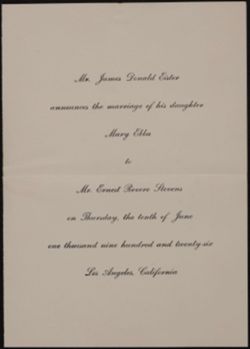 Mr. James Donald Eister
announces the marriage of his daughter
Mary Ella
to
Mr. Ernest Revere Stevens
on Thursday, the tenth of June
one thousand nine hundred and twenty-six
Los Angeles, California